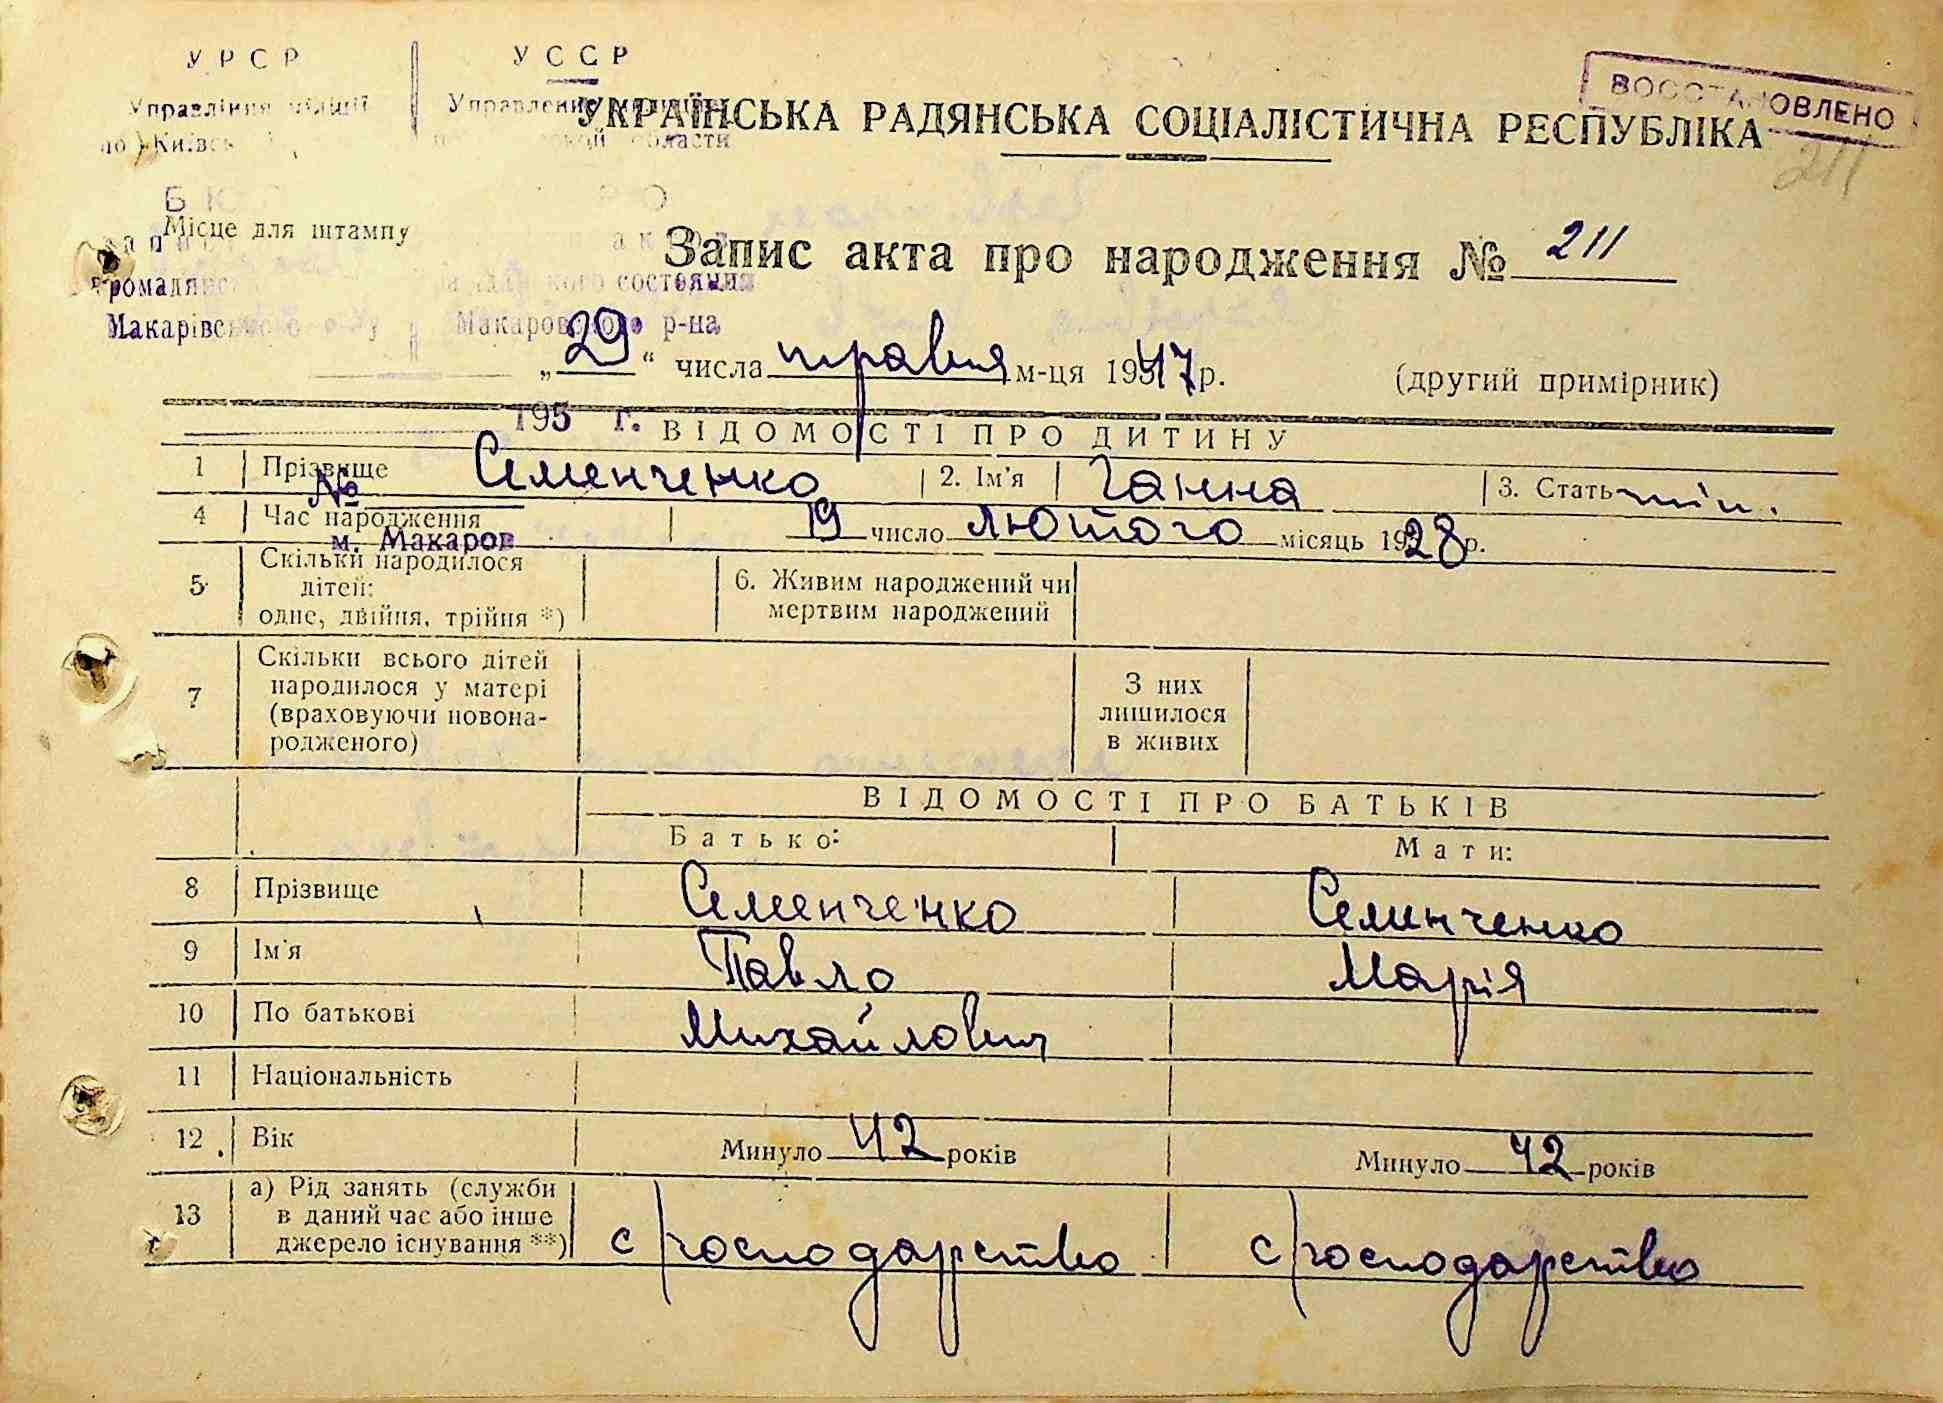 УРСР
Управління міліції
по Київс
УССР
Управление
области
ВОССТАНОВЛЕНО
УКРАЇНСЬКА РАДЯНСЬКА СОЦІАЛІСТИЧНА РЕСПУБЛІКА
211
Місце для штампу
Запис акта про народження № 211
состояния
Макарівського Макаровского р-на
„29“ числа травня м-ця 1947 р. (другий примірник)
195 г.
ВІДОМОСТІ ПРО ДИТИНУ
1 Прізвище Семенченко 2. Ім'я Ганна 3. Стать
№
4 Час народження 19 число лютого місяць 1928 р.
м. Макаров
5 Скільки народилося дітей: одне, двійня, трійня *) 6. Живим народжений чи мертвим народжений
7 Скільки всього дітей народилося у матері (враховуючи новона-родженого) З них лишилося в живих
ВІДОМОСТІ ПРО БАТЬКІВ
Батько: Мати:
8 Прізвище Семенченко Семинченко
9 Ім'я Павло Марія
10 По батькові Михайлович
11 Національність
12 Вік Минуло 42 років Минуло 42 років
13 а) Рід занять (служби в даний час або інше джерело існування **) с/господарство с/господарство